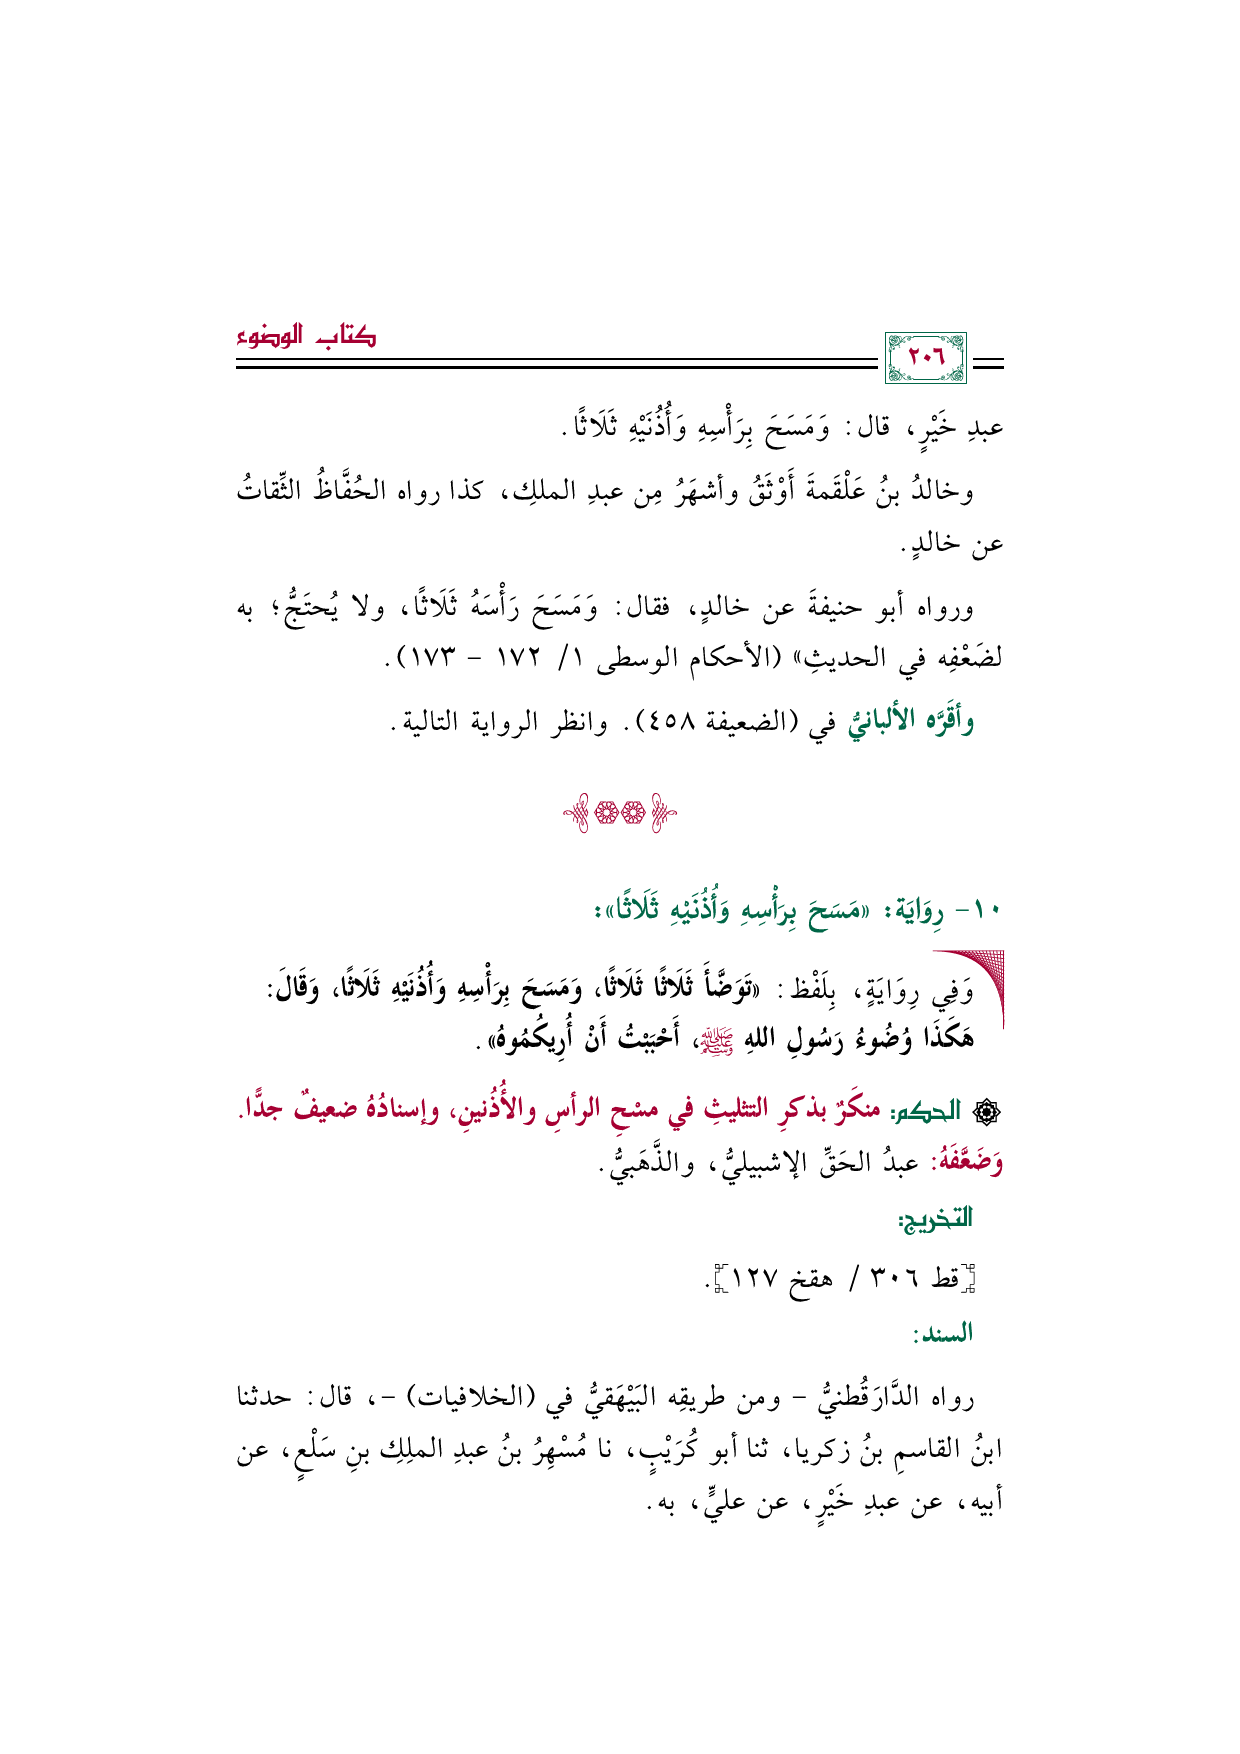 كتاب الوضوء
٢٠٦
عبدِ خَيْرٍ، قال: وَمَسَحَ بِرَأْسِهِ وَأُذُنَيْهِ ثَلَاثًا.
وخالدُ بنُ عَلْقَمةَ أَوْثَقُ وأشهَرُ مِن عبدِ الملكِ، كذا رواه الحُفَّاظُ الثِّقاتُ
عن خالدٍ.
ورواه أبو حنيفةَ عن خالدٍ، فقال: وَمَسَحَ رَأْسَهُ ثَلَاثًا، ولا يُحتَجُّ؛ به
لضَعْفِه في الحديثِ» (الأحكام الوسطى ١/ ١٧٢ - ١٧٣).
وأقَرَّه الألبانيُّ في (الضعيفة ٤٥٨). وانظر الرواية التالية.
١٠- رِوَايَة: «مَسَحَ بِرَأْسِهِ وَأُذُنَيْهِ ثَلَاثًا»:
وَفِي رِوَايَةٍ، بِلَفْظ: «تَوَضَّأَ ثَلَاثًا ثَلَاثًا، وَمَسَحَ بِرَأْسِهِ وَأُذُنَيْهِ ثَلَاثًا، وَقَالَ:
هَكَذَا وُضُوءُ رَسُولِ اللهِ ﷺ، أَحْبَبْتُ أَنْ أُرِيكُمُوهُ».
الحكم: منكَرٌ بذكرِ التثليثِ في مسْحِ الرأسِ والأُذُنينِ، وإسنادُهُ ضعيفٌ جدًّا.
وَضَعَّفَهُ: عبدُ الحَقِّ الإشبيليُّ، والذَّهَبيُّ.
التخريج:
[قط ٣٠٦ / هقخ ١٢٧].
السند:
رواه الدَّارَقُطنيُّ - ومن طريقِه البَيْهَقيُّ في (الخلافيات) -، قال: حدثنا
ابنُ القاسمِ بنُ زكريا، ثنا أبو كُرَيْبٍ، نا مُسْهِرُ بنُ عبدِ الملِكِ بنِ سَلْعٍ، عن
أبيه، عن عبدِ خَيْرٍ، عن عليٍّ، به.